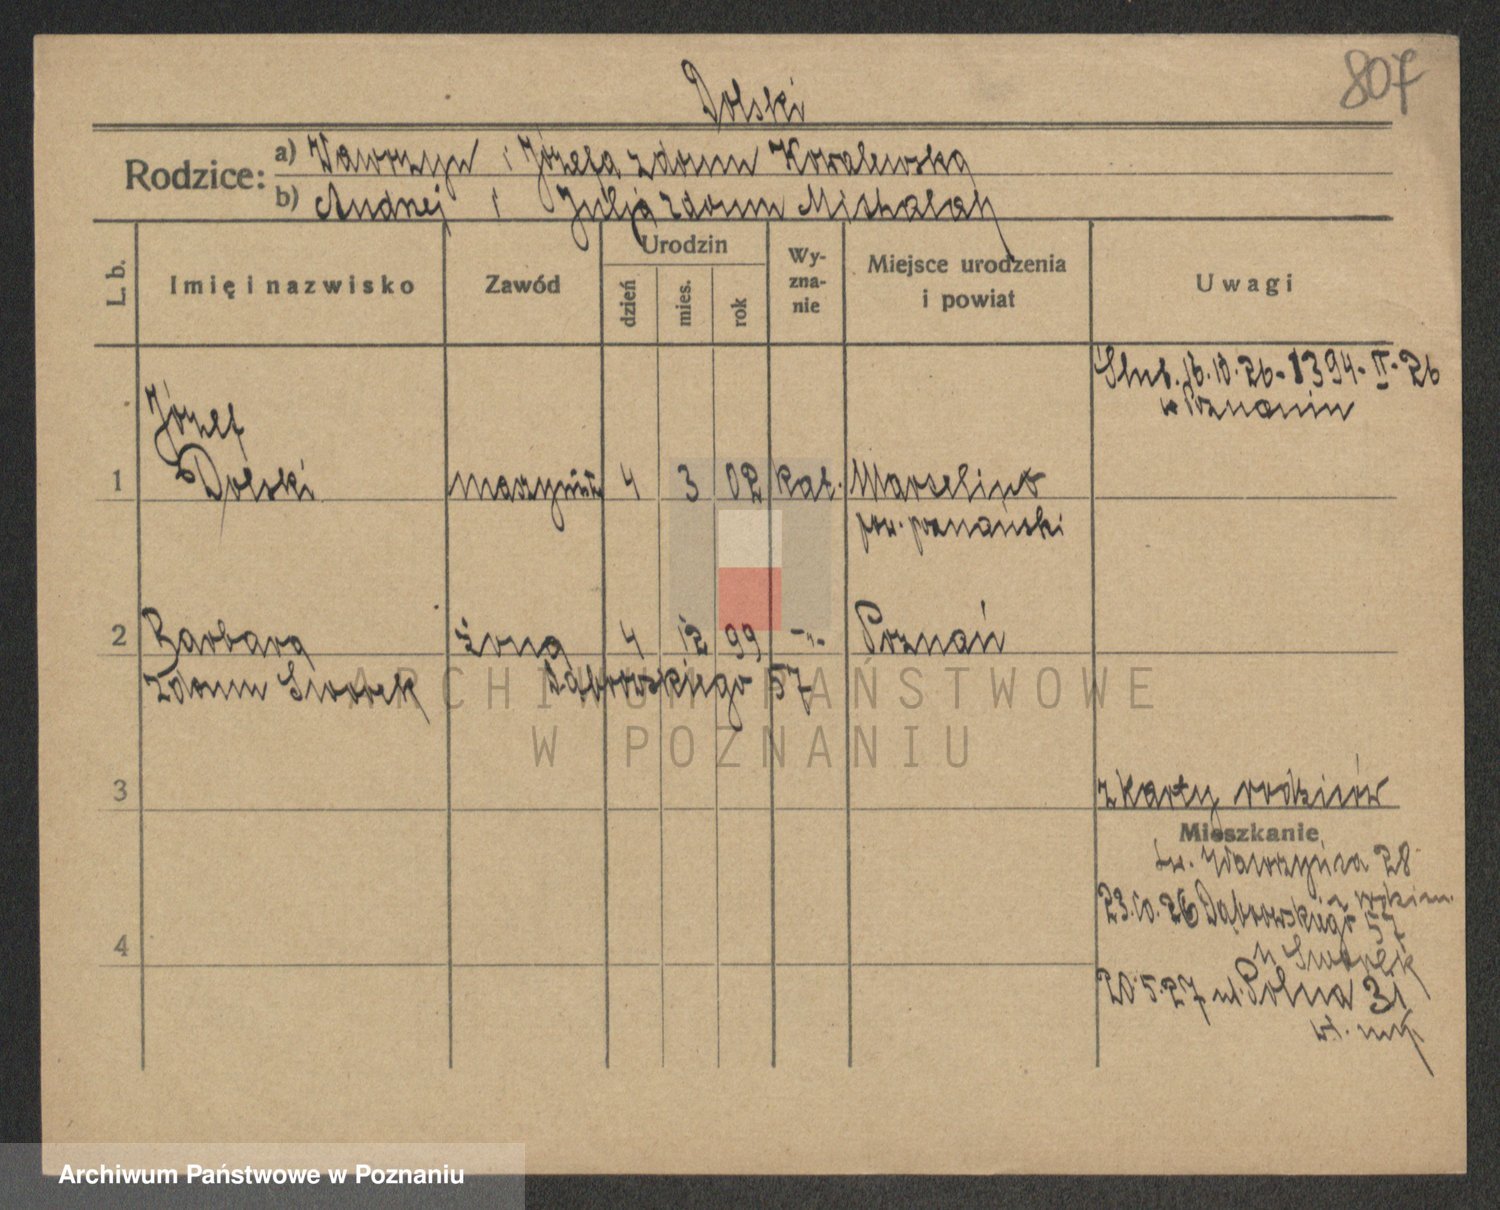 807
Dolski
Rodzice:
a) Wawrzyn i Józefa z domu Kowalewska
b) Andrzej i Julja z domu Michalak
L. b.
Imię i nazwisko
Zawód
Urodzin
dzień
mies.
rok
Wy-
zna-
nie
Miejsce urodzenia
i powiat
Uwagi
Ślub. 16.10.26 - 1394 - II - 26
w Poznaniu
Józef
1 Dolski maszynista 4 3 02 kat. Marcelino
pow. poznański
2 Barbara żona 4 12 99 -"- Poznań
z domu Sworek Dąbrowskiego 57
3 z karty rodziców
Mieszkanie
św. Wawrzyńca 28
z rodzicam.
23.10.26 Dąbrowskiego 57
4 u Sworek
20.5.27 ul. Polna 31
wł. mk
ARCHIWUM PAŃSTWOWE
W POZNANIU
Archiwum Państwowe w Poznaniu